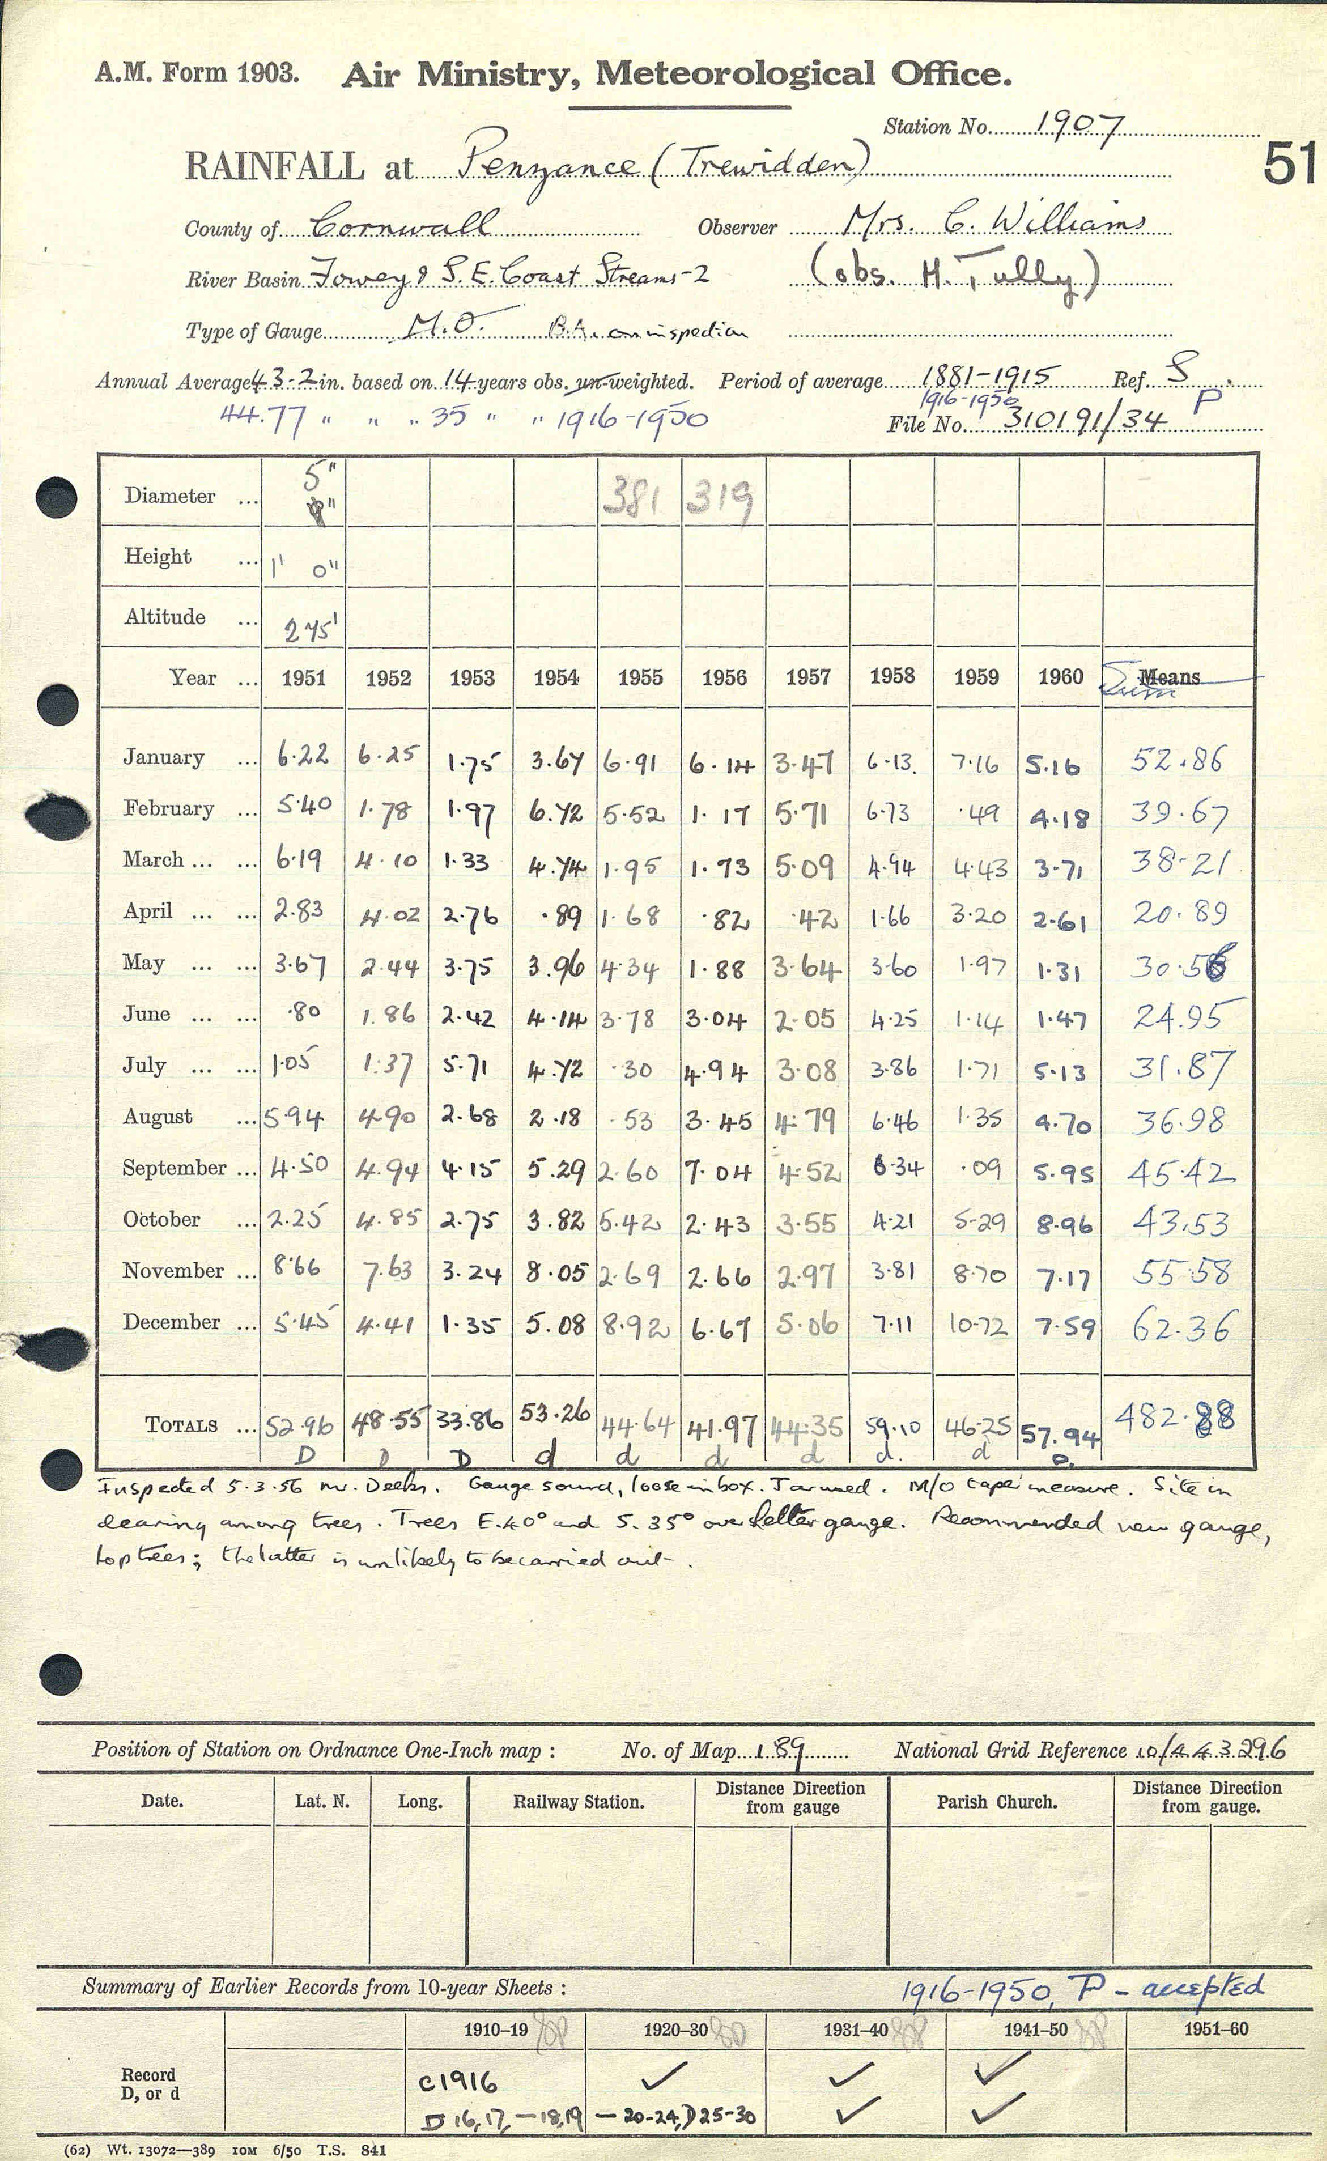 A.M. Form 1903. Air Ministry, Meteorological Office.
Station No. 1907
51
RAINFALL at Penzance (Trewidden)
County of Cornwall Observer Mrs. C. Williams
River Basin Fowey & S.E. Coast Streams-2 (obs. H. Tully)
Type of Gauge M.O. B.A. on inspection
Annual Average 43.2 in. based on 14 years obs. un-weighted. Period of average 1881-1915 Ref. S
44.77 " " " 35 " " 1916-1950 1916-1950 P
File No. 310191/34
Diameter ... 5" 8" 381 319
Height ... 1' 0"
Altitude ... 275'
Year ... 1951 1952 1953 1954 1955 1956 1957 1958 1959 1960 Means Sum
January ... 6.22 6.25 1.75 3.67 6.91 6.14 3.47 6.13 7.16 5.16 52.86
February ... 5.40 1.78 1.97 6.72 5.52 1.17 5.71 6.73 .49 4.18 39.67
March ... ... 6.19 4.10 1.33 4.74 1.95 1.73 5.09 4.94 4.43 3.71 38.21
April ... ... 2.83 4.02 2.76 .89 1.68 .82 .42 1.66 3.20 2.61 20.89
May ... ... 3.67 2.44 3.75 3.96 4.34 1.88 3.64 3.60 1.97 1.31 30.56
June ... ... .80 1.86 2.42 4.14 3.78 3.04 2.05 4.25 1.14 1.47 24.95
July ... ... 1.05 1.37 5.71 4.72 .30 4.94 3.08 3.86 1.71 5.13 31.87
August ... 5.94 4.90 2.68 2.18 .53 3.45 4.79 6.46 1.35 4.70 36.98
September ... 4.50 4.94 4.15 5.29 2.60 7.04 4.52 6.34 .09 5.95 45.42
October ... 2.25 4.85 2.75 3.82 5.42 2.43 3.55 4.21 5.29 8.96 43.53
November ... 8.66 7.63 3.24 8.05 2.69 2.66 2.97 3.81 8.70 7.17 55.58
December ... 5.45 4.41 1.35 5.08 8.92 6.67 5.06 7.11 10.72 7.59 62.36
TOTALS ... 52.96 48.55 33.86 53.26 44.64 41.97 44.35 59.10 46.25 57.94 482.88
D D D d d d d d. d D.
Inspected 5.3.56 Mr. Deeks. Gauge sound, loose in box. Jar used. M/O tape measure. Site in
clearing among trees. Trees E.40° and S. 35° over gauge. Recommended new gauge,
top trees; the latter is unlikely to be carried out.
Position of Station on Ordnance One-Inch map : No. of Map 189 National Grid Reference 10/443296
Date. Lat. N. Long. Railway Station. Distance Direction from gauge Parish Church. Distance Direction from gauge.
Summary of Earlier Records from 10-year Sheets : 1916-1950, P - accepted
1910–19 1920–30 1931–40 1941–50 1951–60
Record c1916 ✓ ✓ ✓
D, or d D 16,17, — 18,19 — 20-24, D 25-30 ✓ ✓
(62) Wt. 13072—389 10M 6/50 T.S. 841